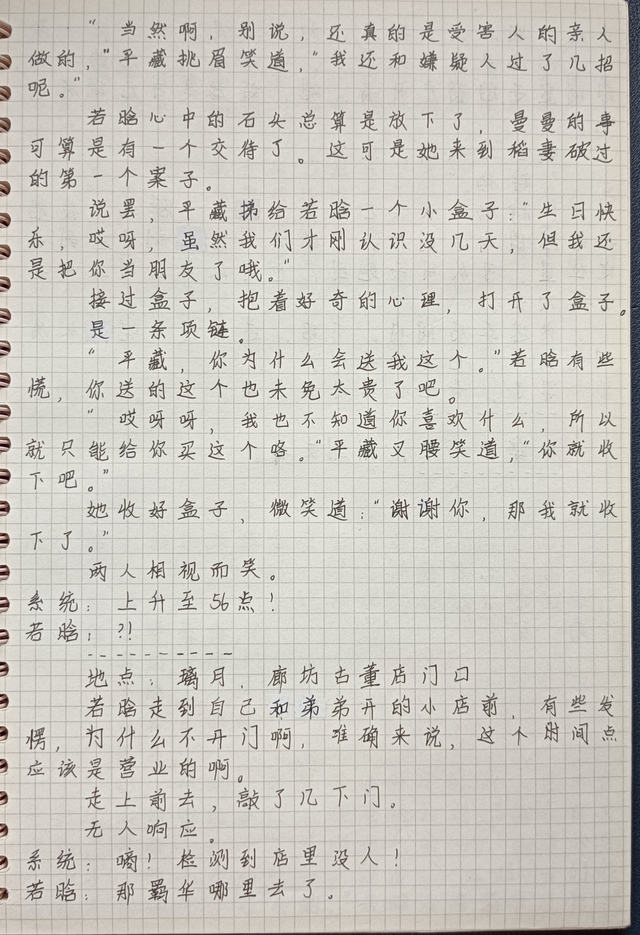 “当然啊，别说，还真的是受害人的亲人
做的，”平藏挑眉笑道，“我还和嫌疑人过了几招
呢。”
若晗心中的石头总算是放下了，曼曼的事
可算是有一个交待了。这可是她来到稻妻破过
的第一个案子。
说罢，平藏递给若晗一个小盒子：“生日快
乐，哎呀，虽然我们才刚认识没几天，但我还
是把你当朋友了哦。”
接过盒子，抱着好奇的心理，打开了盒子。
是一条项链。
“平藏，你为什么会送我这个。”若晗有些
慌，你送的这个也未免太贵了吧。
“哎呀呀，我也不知道你喜欢什么，所以
就只能给你买这个咯。”平藏叉腰笑道，“你就收
下吧。”
她收好盒子，微笑道：“谢谢你，那我就收
下了。”
两人相视而笑。
系统：上升至56点！
若晗：?!
----------
地点：璃月，廊坊古董店门口
若晗走到自己和弟弟开的小店前，有些发
愣，为什么不开门啊，准确来说，这个时间点
应该是营业的啊。
走上前去，敲了几下门。
无人响应。
系统：嘀！检测到店里没人！
若晗：那羁华哪里去了。